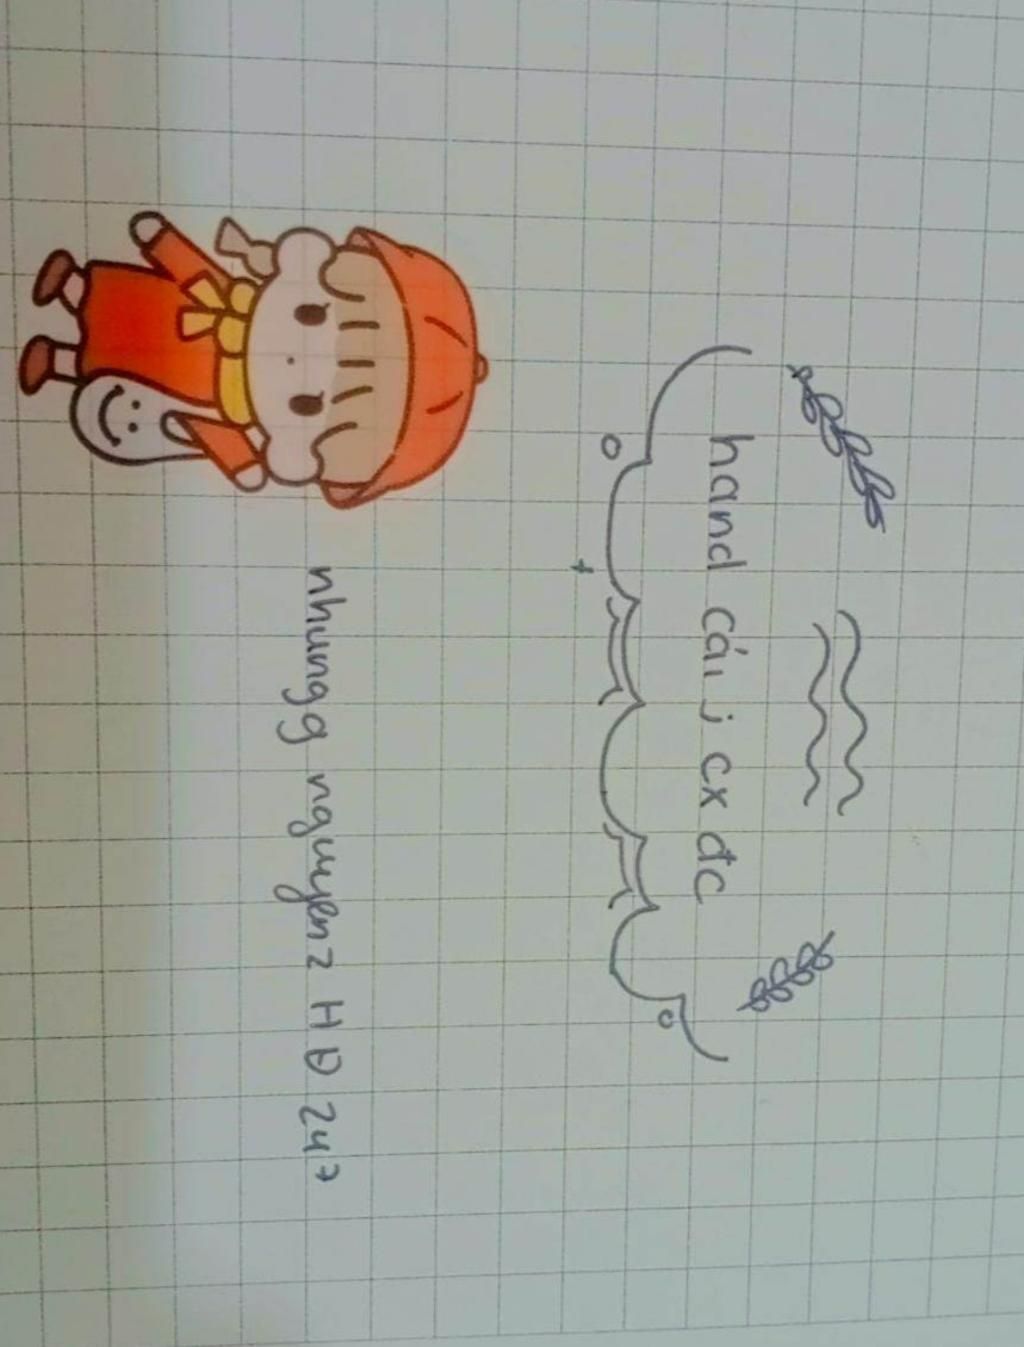 hand cái j cx đc
nhungg nguyenz HĐ 247